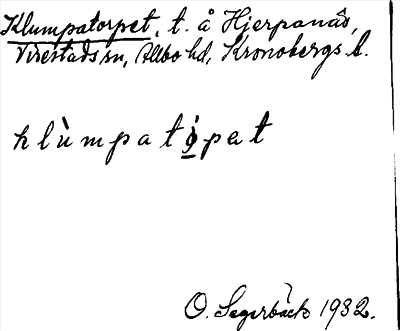 Klumpatorpet, t. å Hjerpanäs,
Virestads sn, Allbo hd, Kronobergs l.
klùmpató̱pat
O. Segerbäck 1932.